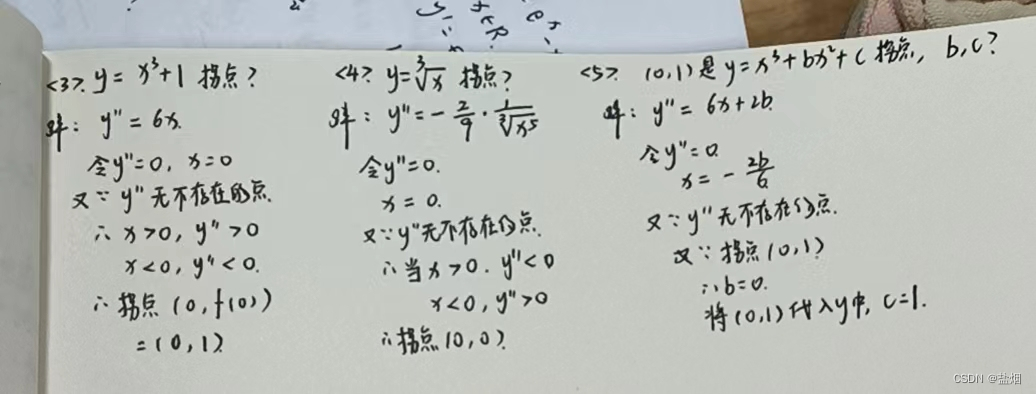 <3>. y = x³+1 拐点?
解: y'' = 6x.
令y''=0, x=0
又∵ y''无不存在的点.
∴ x>0, y''>0
x<0, y''<0.
∴ 拐点 (0, f(0))
=(0,1)
<4>. y=∛x 拐点?
解: y''= - 2/9 · 1/∛x⁵
令y''=0.
x=0.
又∵y''无不存在的点.
∴当x>0. y''<0
x<0, y''>0
∴拐点(0,0)
<5>. (0,1)是y=x³+bx²+c 拐点, b,c?
解: y''= 6x+2b.
令y''=0.
x= - 2b/6
又∵y''无不存在的点.
又∵拐点(0,1)
∴b=0.
将(0,1)代入y中, c=1.
CSDN @盐烟